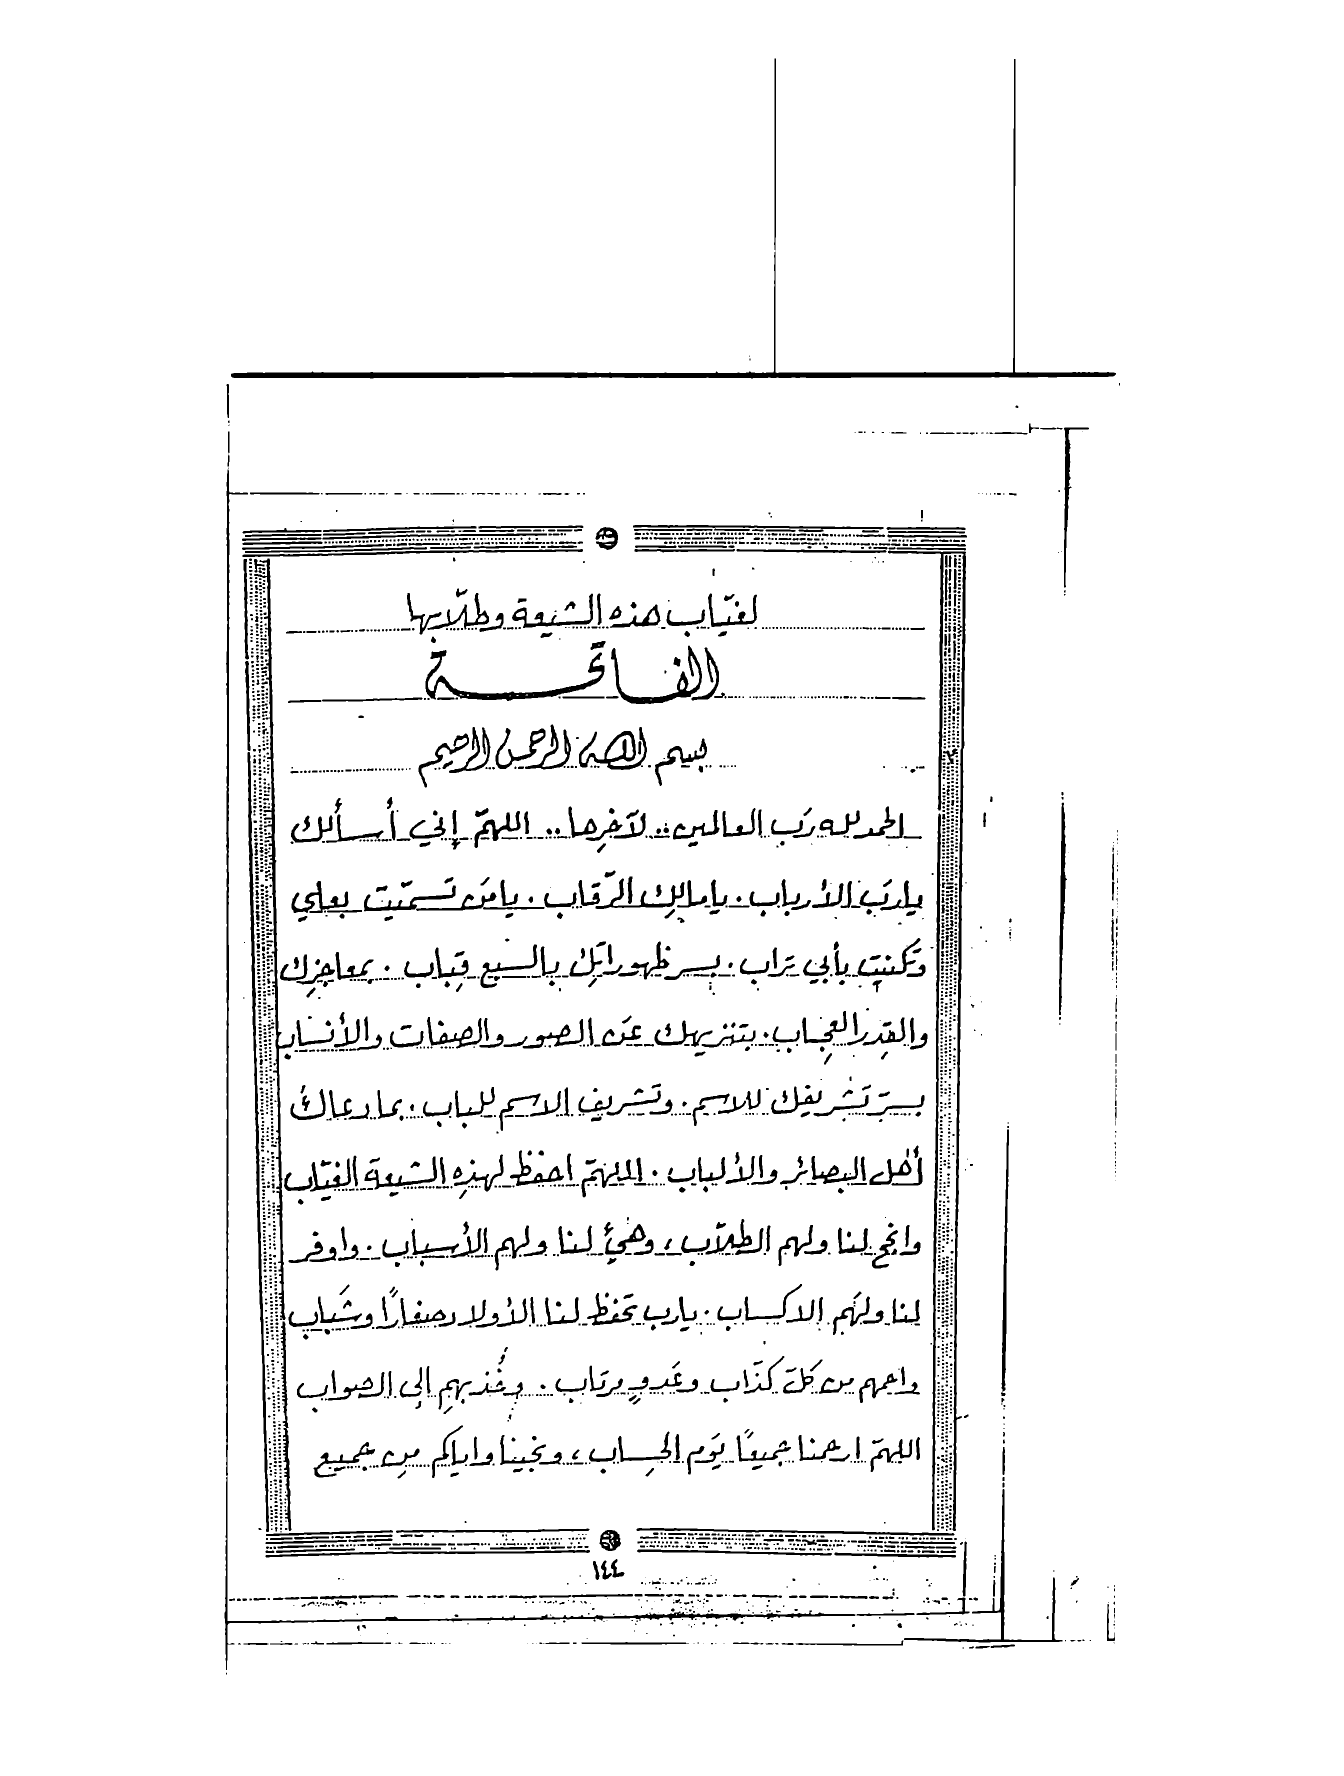 لغيّاب هذه الشيعة وطلّابها
الفاتحة
بسم الله الرحمن الرحيم
الحمد لله رَب العالمين.. لآخرِها.. اللهمّ إني أسألك
يا ربَّ الأرباب. يا مالِك الرّقاب. يا مَن تسمّيت بعلي
وتكنيت بأبي تراب. بسر ظهوراتِك بالسبع قِباب. بمعاجزِك
والقِدر العِجاب. بتنزيهك عَن الصور والصفات والأنسَاب
بسرّ تَشريفك للاسم. وتَشريف الاسم للباب. بما دعاك
أهل البصائر والألباب. اللهمّ احفظ لهذِه الشيعة الغيّاب
وانجح لنا ولهم الطلّاب، وهيئ لنا ولهم الأسباب. واوفر
لنا ولهَم الاكساب. يا رب تحفظ لنا الأولاد صغارًا وشَباب
واحمهم من كلّ كذّاب وعَدوٍ مرتاب. وخُذ بهم إلى الصواب
اللهمّ ارحمنا جميعًا يَوم الحِساب، ونجينا واياكم مِن جميع
١٤٤